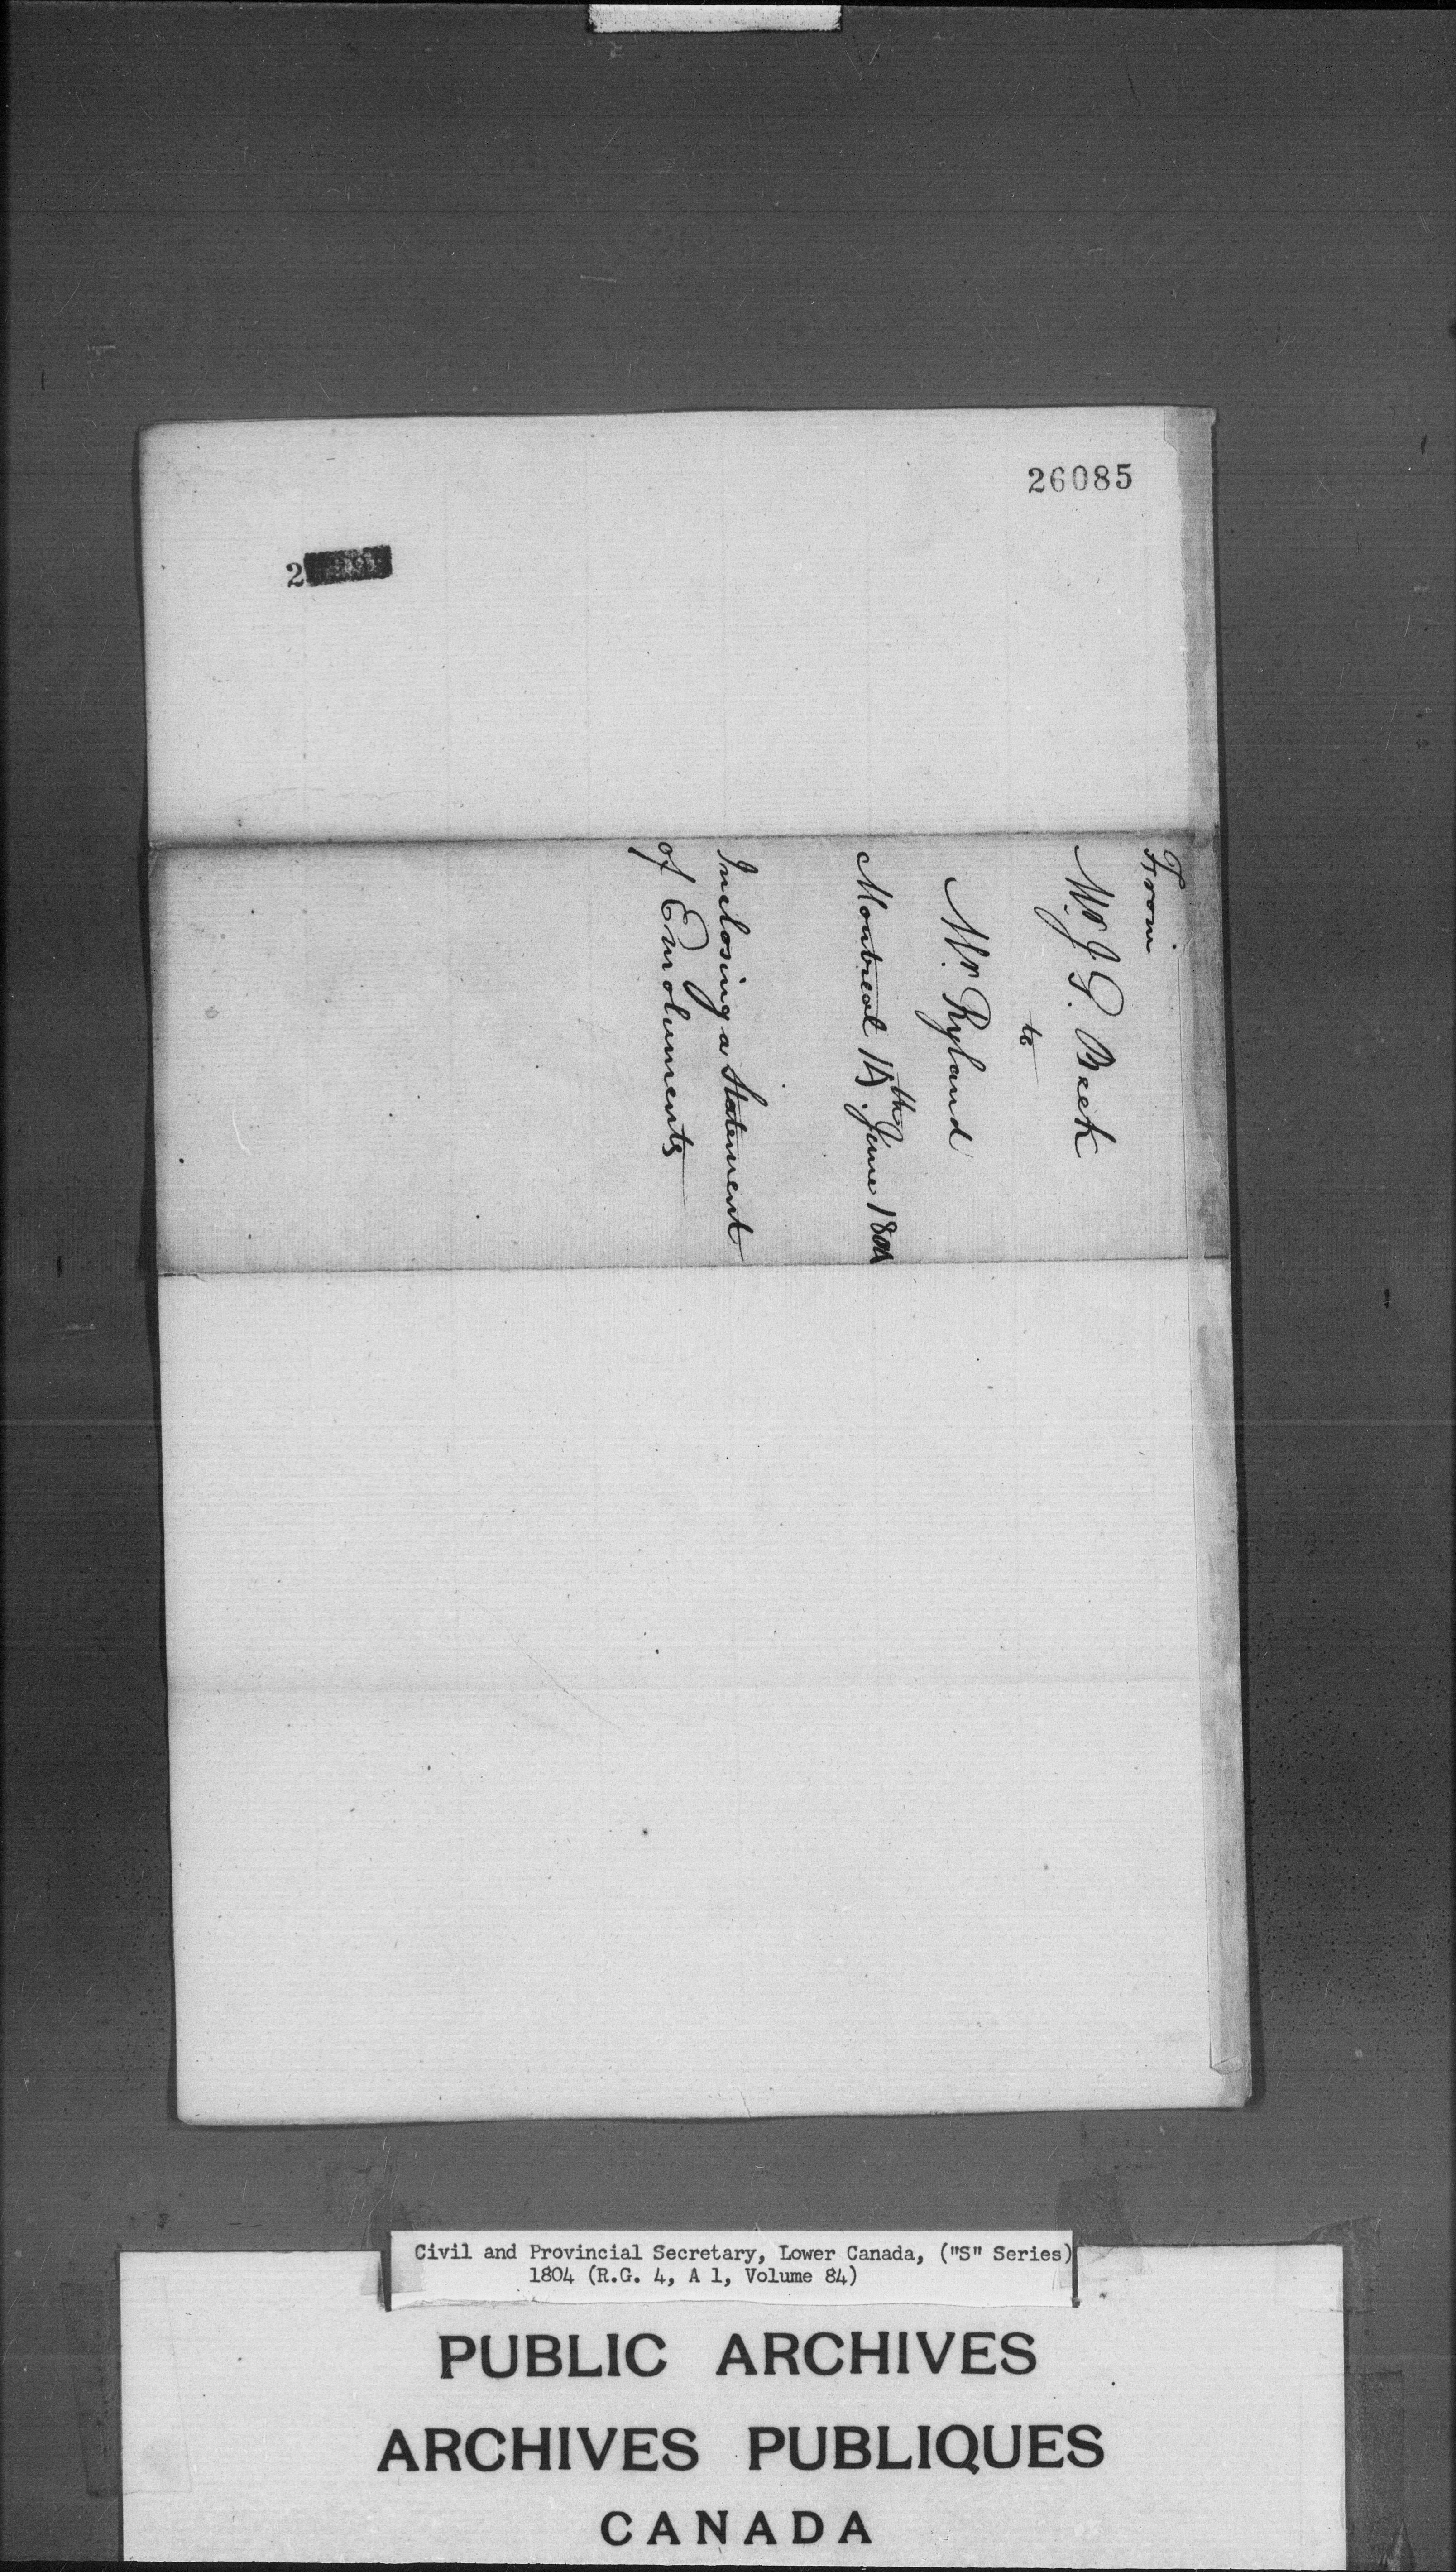 26085
2
From
Mr. J. G. Beek
to
Mr. Ryland
Montreal 14th. June 1804
Inclosing a Statement
of Emoluments
Civil and Provincial Secretary, Lower Canada, ("S" Series)
1804 (R.G. 4, A 1, Volume 84)
PUBLIC ARCHIVES
ARCHIVES PUBLIQUES
CANADA